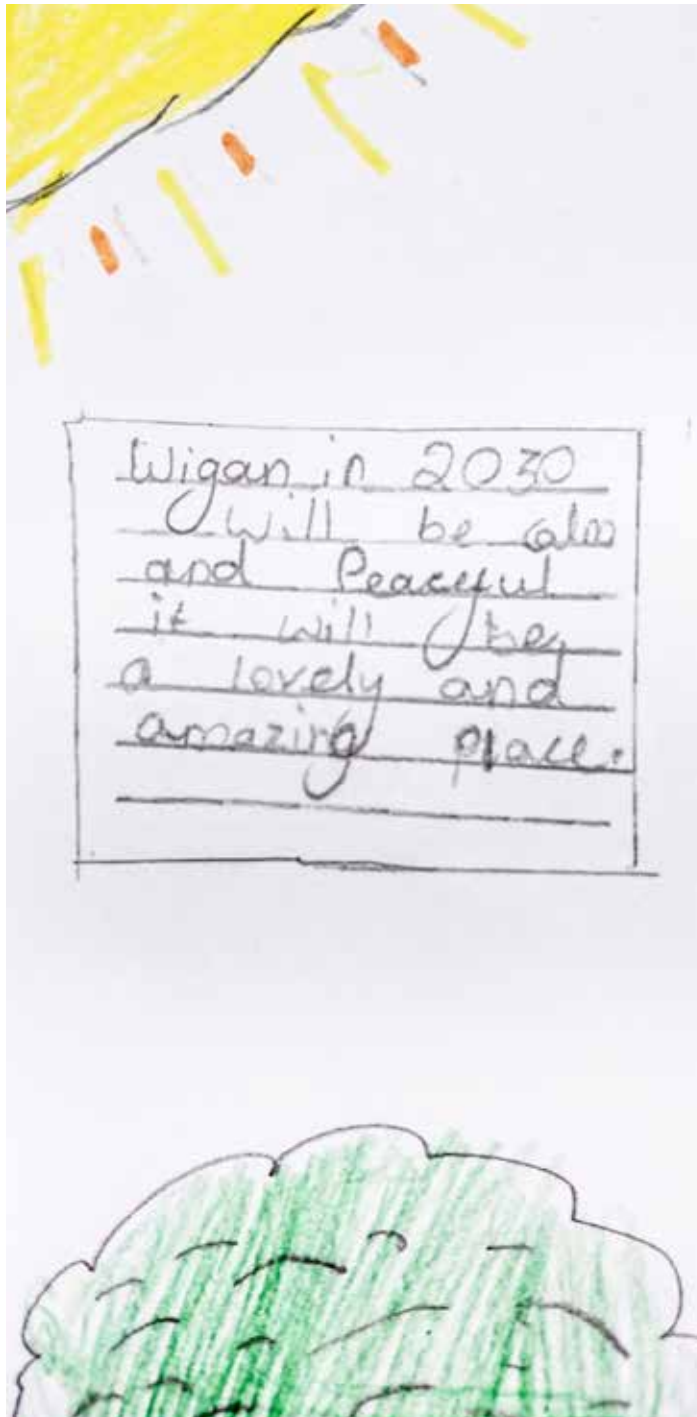 Wigan in 2030
will be calm
and Peaceful
it will be
a lovely and
amazing place.